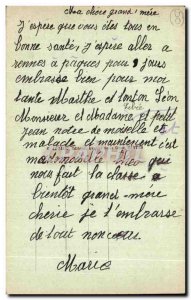 Ma chère grand mère
J'espère que vous êtes tous en
bonne santé, j'espère aller a
rennes à pâques pour 8 jours
embrasse bien pour moi
tante Marthe et tonton Léon
Monsieur et Madame et petit
jean notre de moiselle est
malade et maintenent c'est
mademoiselle qui
nous fait la classe a
bientôt grand mère
cherie je t'embrasse
de tout mon
Marie